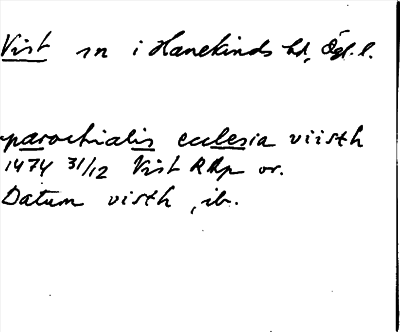 Vist sn i Hanekinds hd, Ögl. l.
parochialis ecclesia viisth
1474 31/12 Vist RAp or.
Datum visth, ib.